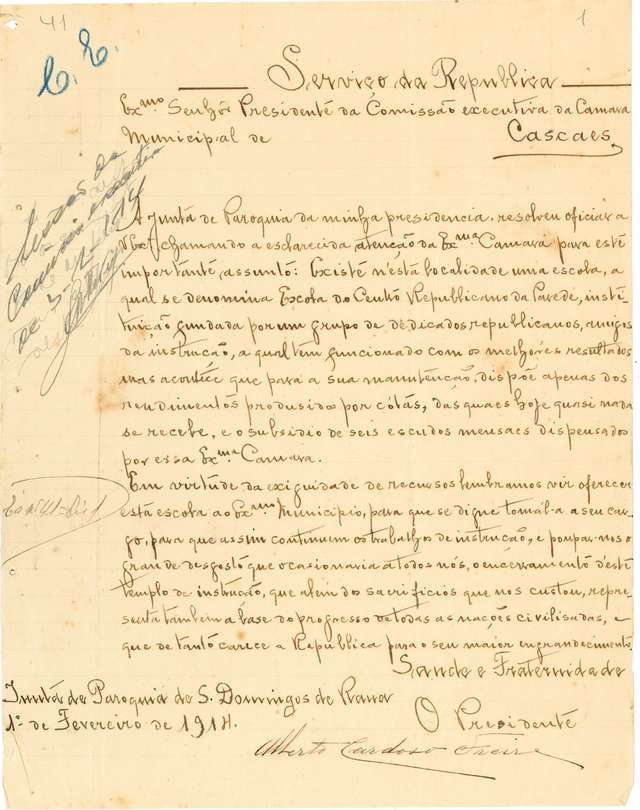 41
1
C. E.
Serviço da Republica
Exmo Senhôr Presidente da Comissão executiva da Camara
Municipal de Cascaes
Sessão da
Comissão executiva
de 5-2-1914
A Junta de Paroquia da minha presidencia, resolveu oficiar a
V. Exª, chamando a esclarecida atenção da Exma Camara para esté
importante, assunto: Existé n'ésta localidade uma escola, a
qual se denomina Escola do Centro Republicano da Parede, insti-
tuição fundada por um grupo de dédicados republicanos, amigos
da instrucção, a qual tem funcionado com os melhores resultados
mas acontéce que para a sua manutenção, dispõe apenas dos
rendimentos produsidos por cótas, das quaes hoje quasi nada
se recebe, e o subsidio de seis escudos mensaes dispensados
por essa Exma Camara.
Em virtude da exiguidade de recursos lembramos vir oferecer
está escola ao Exmo Municipio, para que se digne tomal-a a seu car-
go, para que assim continuem os trabalhos de instrucção, e poupar-nos o
grande desgosto que ocasionaria a todos nós, o encerramento d'esté
templo de instrucção, que alem dos sacrificios que nos custou, repre-
senta tambem a base do progresso de todas as nações civilisadas, e
que de tanto carece a Republica para o seu maior engrandecimento.
Saude e Fraternidade
Junta de Paroquia de S. Domingos de Rana
1º de Fevereiro de 1914.
O Presidente
Alberto Cardoso Freire